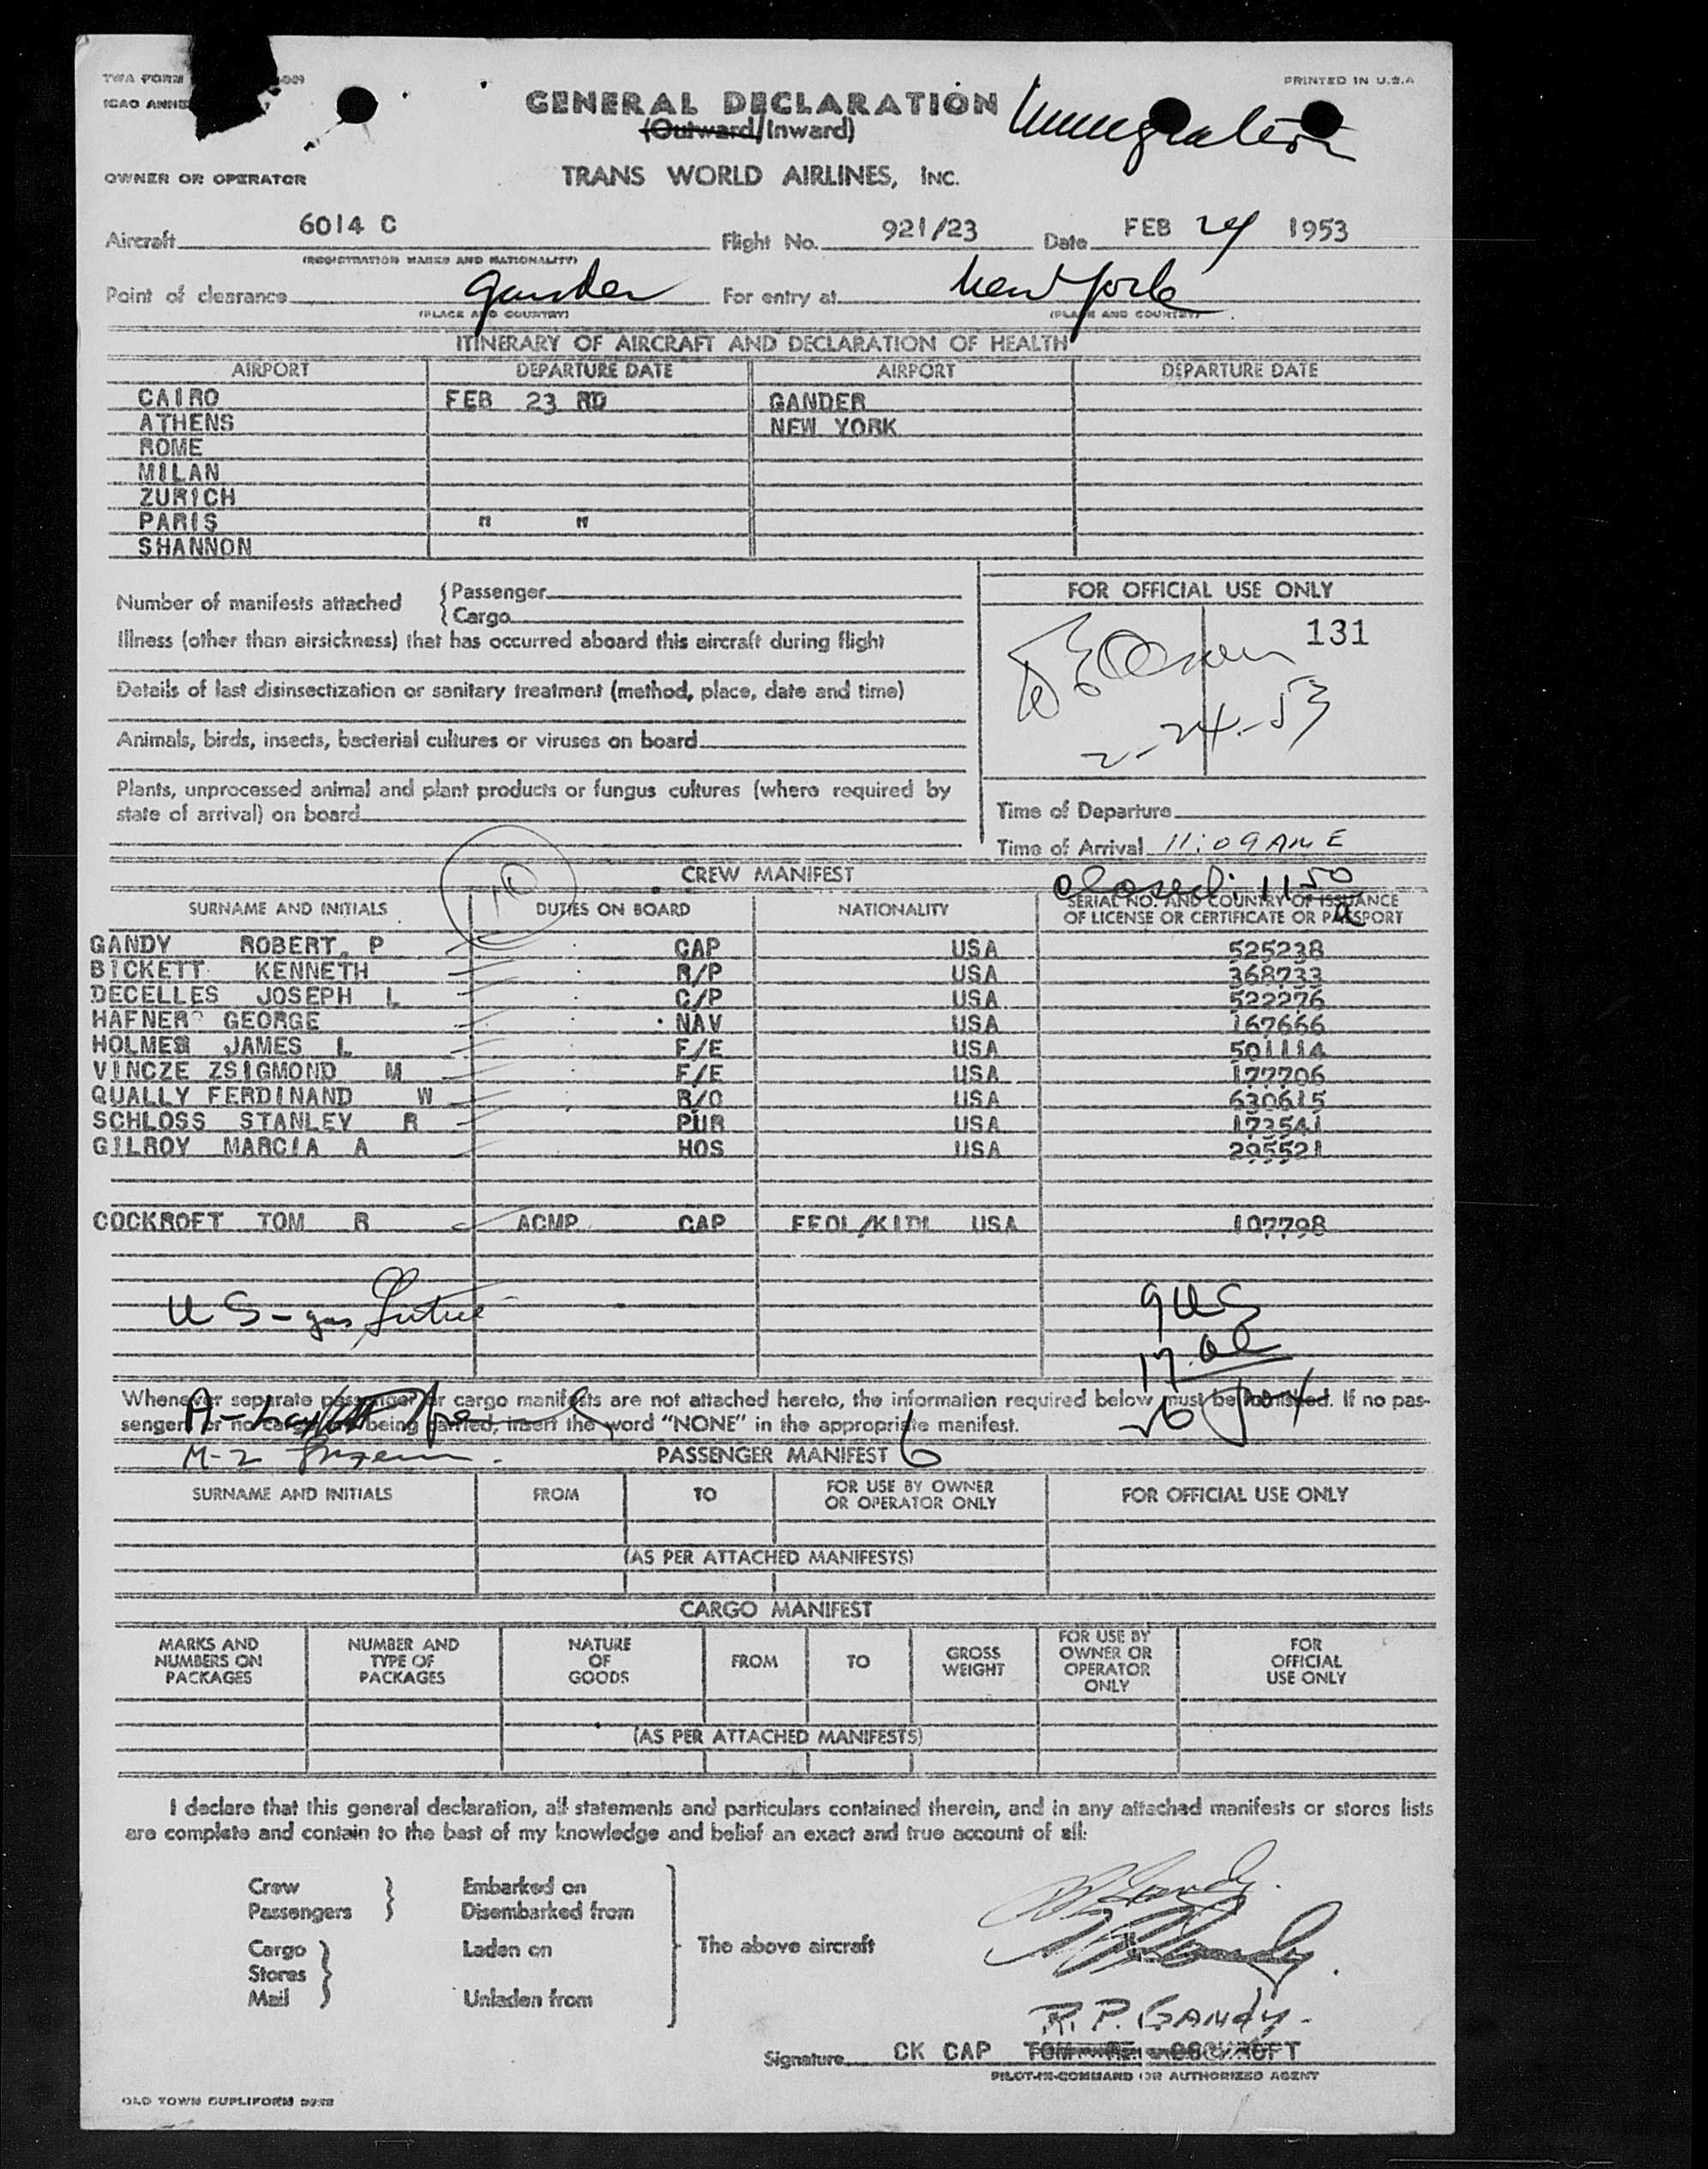 TWA FORM
PRINTED IN U.S.A
ICAO ANNE
GENERAL DECLARATION
Immigration
(Outward/Inward)
OWNER OR OPERATOR TRANS WORLD AIRLINES, INC.
Aircraft 6014 C Flight No. 921/23 Date FEB 24 1953
(REGISTRATION MARKS AND NATIONALITY)
Point of clearance Gander For entry at New York
(PLACE AND COUNTRY) (PLACE AND COUNTRY)
ITINERARY OF AIRCRAFT AND DECLARATION OF HEALTH
AIRPORT DEPARTURE DATE AIRPORT DEPARTURE DATE
CAIRO FEB 23 RD GANDER
ATHENS NEW YORK
ROME
MILAN
ZURICH
PARIS " "
SHANNON
Number of manifests attached { Passenger
{ Cargo
FOR OFFICIAL USE ONLY
131
2-24-53
Illness (other than airsickness) that has occurred aboard this aircraft during flight
Details of last disinsectization or sanitary treatment (method, place, date and time)
Animals, birds, insects, bacterial cultures or viruses on board
Plants, unprocessed animal and plant products or fungus cultures (where required by
state of arrival) on board
Time of Departure
Time of Arrival 11:09 AM E
10
CREW MANIFEST
closed: 1150 a
SURNAME AND INITIALS DUTIES ON BOARD NATIONALITY SERIAL NO. AND COUNTRY OF ISSUANCE
OF LICENSE OR CERTIFICATE OR PASSPORT
GANDY ROBERT. P CAP USA 525238
BICKETT KENNETH R/P USA 368733
DECELLES JOSEPH L C/P USA 522276
HAFNER GEORGE NAV USA 167666
HOLMES JAMES L F/E USA 501114
VINCZE ZSIGMOND M F/E USA 177706
QUALLY FERDINAND W R/O USA 630615
SCHLOSS STANLEY R PUR USA 173541
GILROY MARCIA A HOS USA 295521
COCKROFT TOM R ACMP CAP FEOL/KIDL USA 107798
U S -
9 US
17 al
26
Whenever separate passenger or cargo manifests are not attached hereto, the information required below must be furnished. If no pas-
sengers or no cargo are being carried, insert the word "NONE" in the appropriate manifest.
M-2
PASSENGER MANIFEST
SURNAME AND INITIALS FROM TO FOR USE BY OWNER
OR OPERATOR ONLY FOR OFFICIAL USE ONLY
(AS PER ATTACHED MANIFESTS)
CARGO MANIFEST
MARKS AND
NUMBERS ON
PACKAGES NUMBER AND
TYPE OF
PACKAGES NATURE
OF
GOODS FROM TO GROSS
WEIGHT FOR USE BY
OWNER OR
OPERATOR
ONLY FOR
OFFICIAL
USE ONLY
(AS PER ATTACHED MANIFESTS)
I declare that this general declaration, all statements and particulars contained therein, and in any attached manifests or stores lists
are complete and contain to the best of my knowledge and belief an exact and true account of all:
Crew } Embarked on
Passengers } Disembarked from
Cargo } Laden on The above aircraft
Stores }
Mail } Unladen from
R P Gandy
R P Gandy
R. P. GANDY.
Signature CK CAP TOM R COCKROFT
PILOT-IN-COMMAND OR AUTHORIZED AGENT
OLD TOWN DUPLIFORM